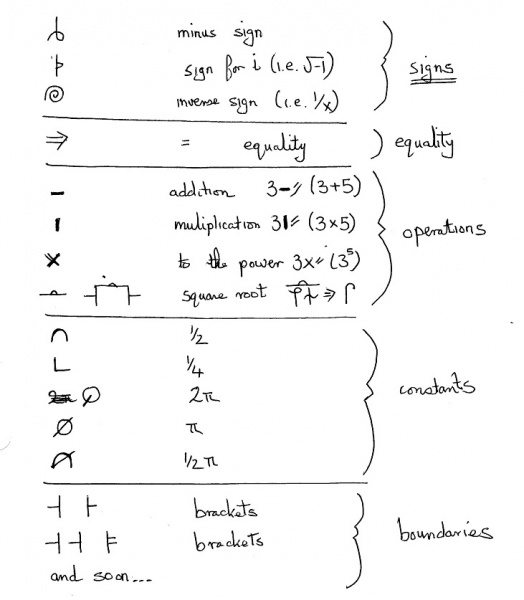 minus sign
sign for i (i.e. √-1)
inverse sign (i.e. 1/x)
signs
⇒ = equality
equality
addition (3+5)
muliplication (3×5)
to the power (3⁵)
square root
operations
1/2
1/4
2π
π
1/2 π
constants
brackets
brackets
and soon...
boundaries